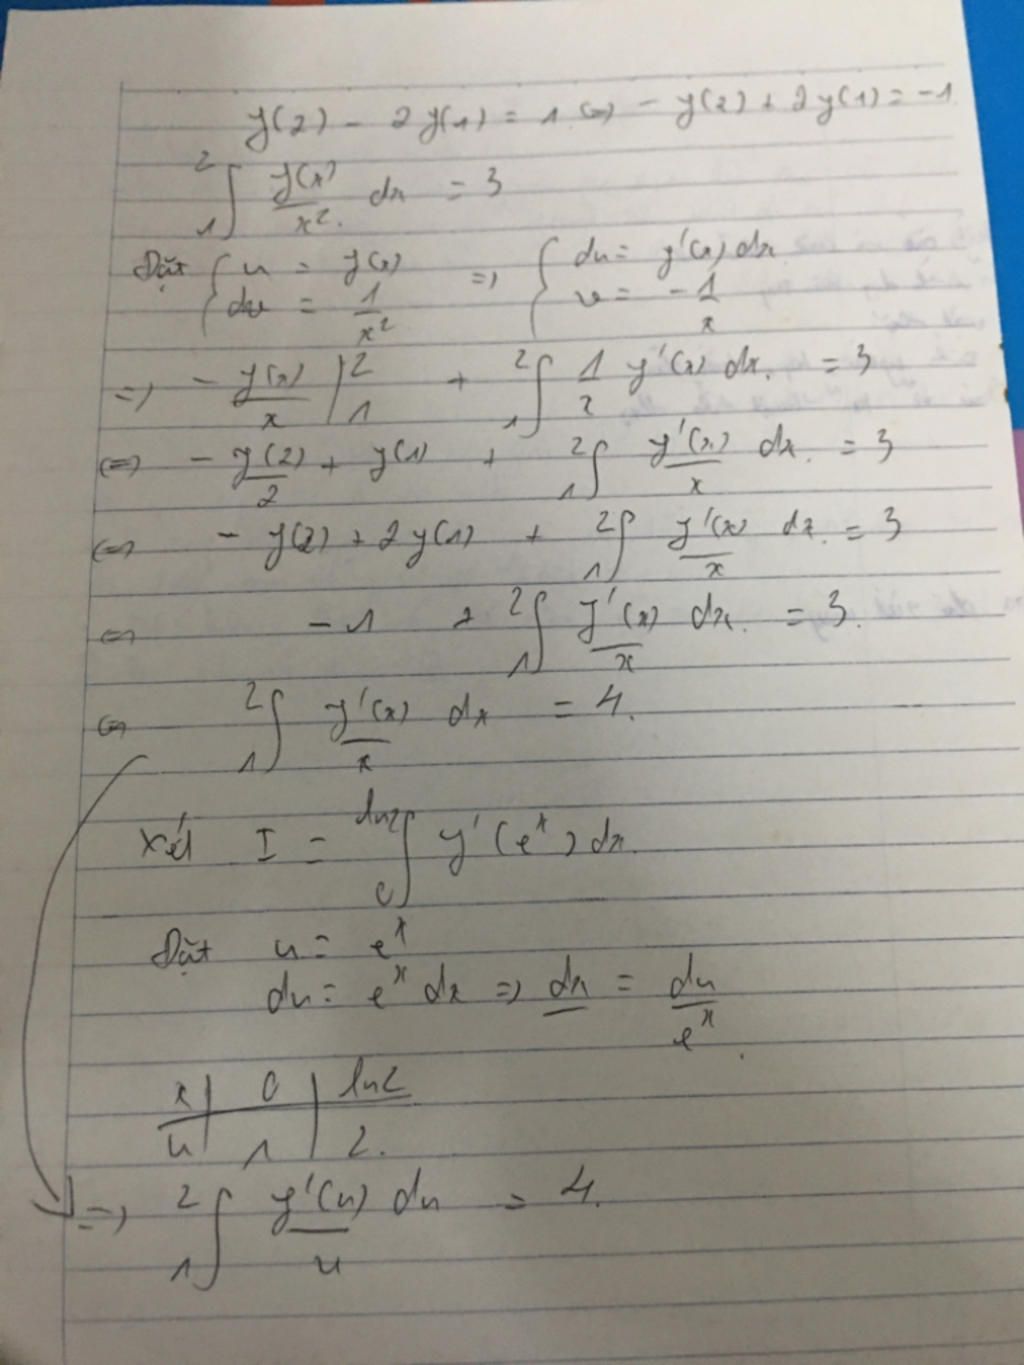 y(2) - 2y(1) = 1 (=) - y(2) + 2y(1) = -1
∫₁² y(x)/x² . dx = 3
Đặt { u = y(x) ; dv = 1/x² => { du = y'(x) dx ; v = -1/x
=> - y(x)/x |₁² + ∫₁² 1/x y'(x) dx. = 3
(=) - y(2)/2 + y(1) + ∫₁² y'(x)/x dx. = 3
(=) - y(2) + 2y(1) + ∫₁² y'(x)/x dx. = 3
(=) -1 + ∫₁² y'(x)/x dx. = 3.
(=) ∫₁² y'(x)/x dx = 4.
Xét I = ∫₀^ln2 y'(eˣ) dx.
Đặt u = eˣ
du = eˣ dx => dx = du/eˣ.
x | 0 | ln2
u | 1 | 2.
=> ∫₁² y'(u)/u du = 4.